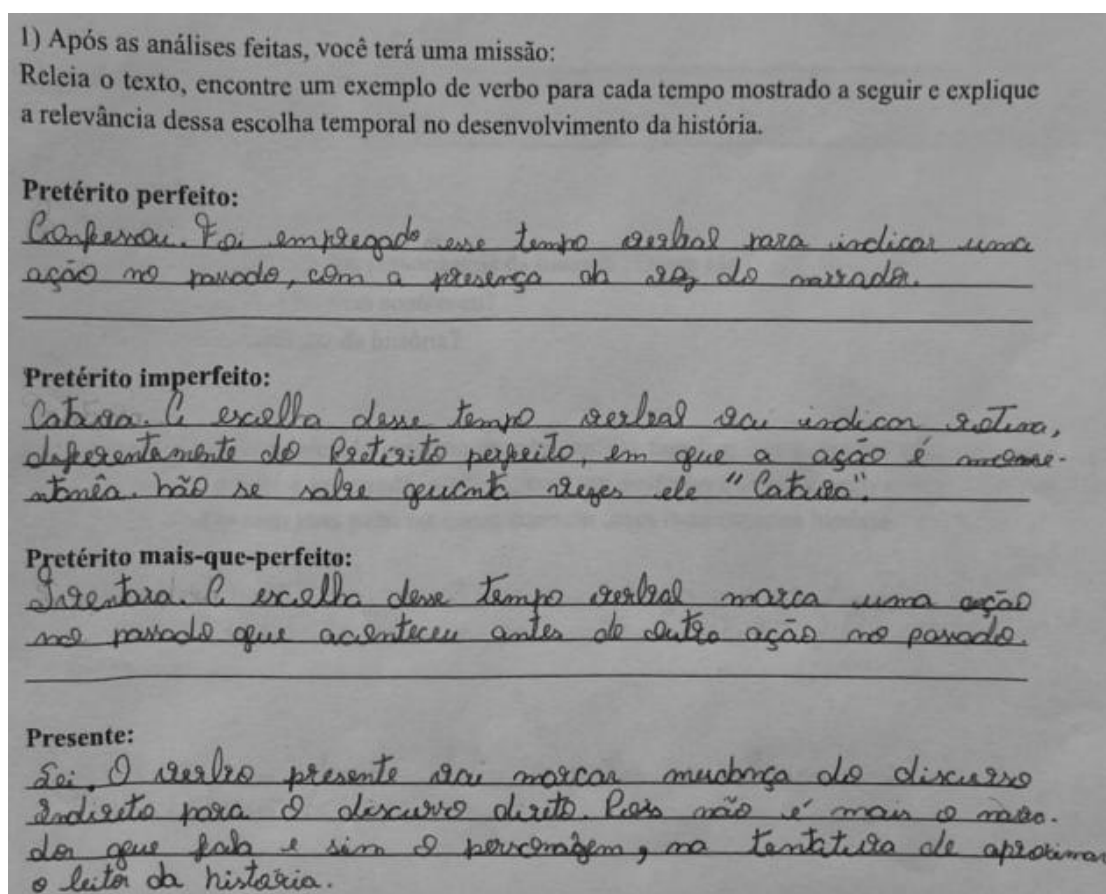 1) Após as análises feitas, você terá uma missão:
Releia o texto, encontre um exemplo de verbo para cada tempo mostrado a seguir e explique
a relevância dessa escolha temporal no desenvolvimento da história.
Pretérito perfeito:
Confessou. Foi empregado esse tempo verbal para indicar uma
ação no passado, com a presença da voz do narrador.
Pretérito imperfeito:
A escolha desse tempo verbal vai indicar rotina,
diferentemente do Pretérito perfeito, em que a ação é mome-
ntanêa. Não se sabe quanta vezes ele
Pretérito mais-que-perfeito:
Inventara. A escolha desse tempo verbal marca uma ação
no passado que aconteceu antes de outra ação no passado.
Presente:
Sei. O verbo presente vai marcar mudança do discurso
indireto para o discurso direto. Pois não é mais o narra-
dor que fala e sim o personagem, na tentativa de aproximar
o leitor da história.